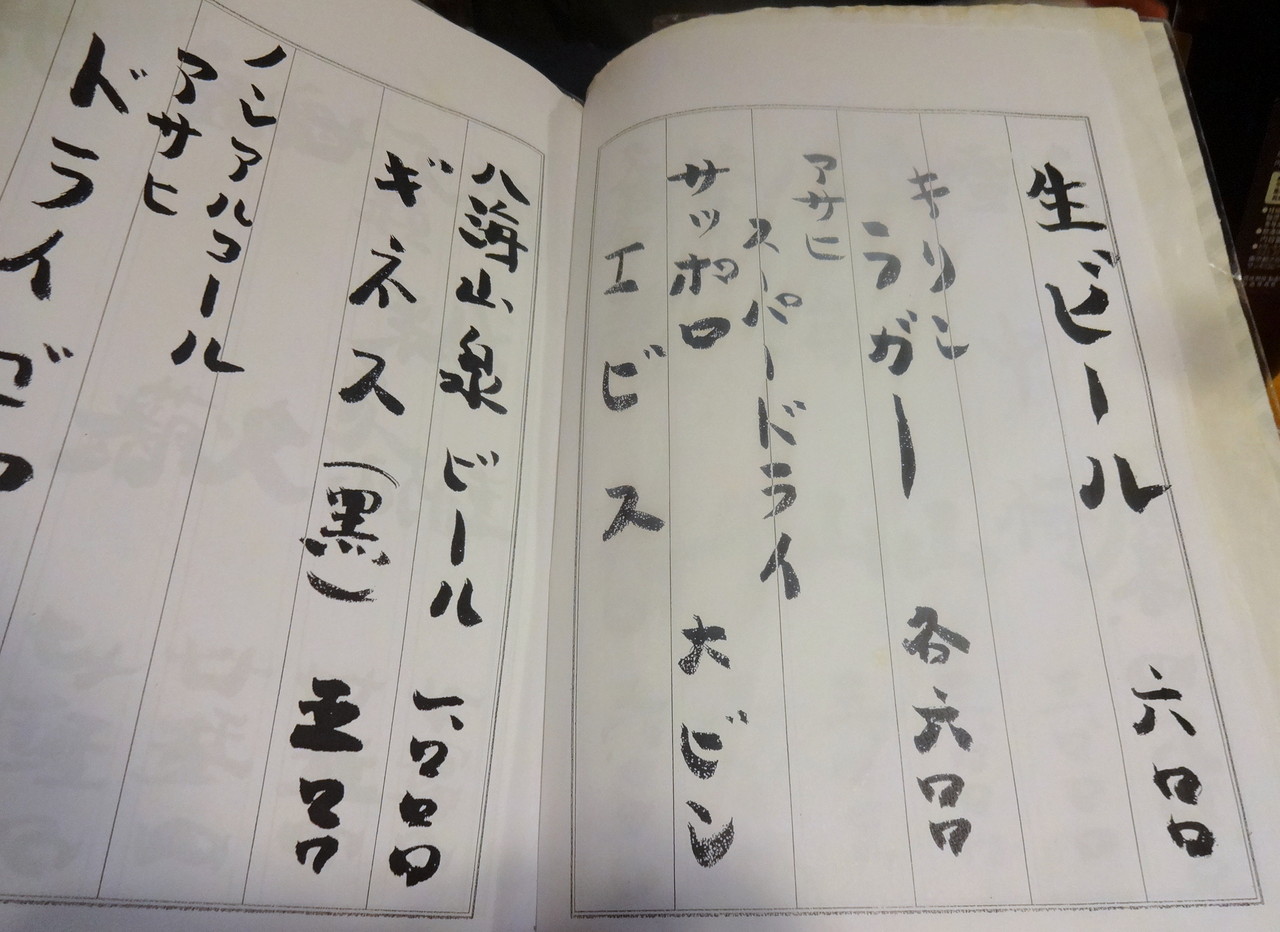 生ビール 六〇〇
きりん
ラガー 各六〇〇
アサヒ
スーパードライ
サッポロ 大ビン
エビス
八海山泉ビール 一、〇〇〇
ギネス(黒) 五〇〇
ノンアルコール
アサヒ
ドライゼロ